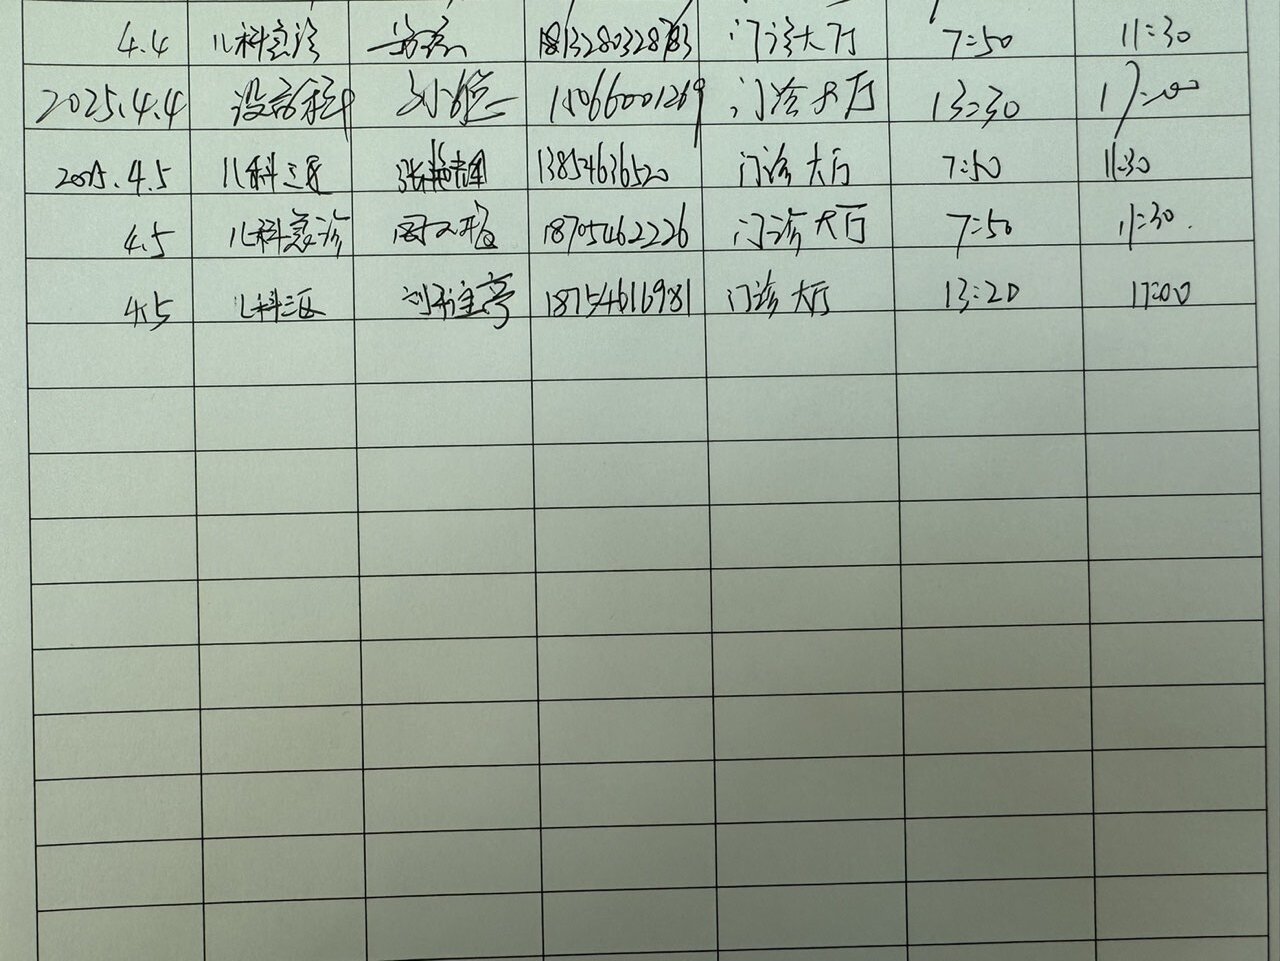 4.4 儿科急诊 门诊大厅 7:50 11:30
2025.4.4 设备科 15066001269 门诊大厅 13:30 17:00
2025.4.5 儿科三区 13854636520 门诊大厅 7:50 11:30
4.5 儿科急诊 18705462226 门诊大厅 7:50 11:30.
4.5 儿科三区 18754616981 门诊大厅 13:20 17:00